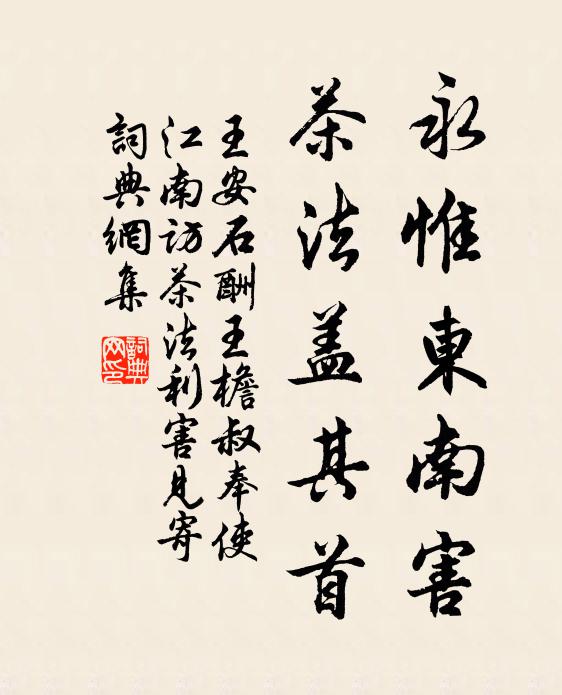 永惟東南害
茶法盖其首
王安石酬王檐叔奉使
江南访茶法利害見寄
詞典網集
詞典网印